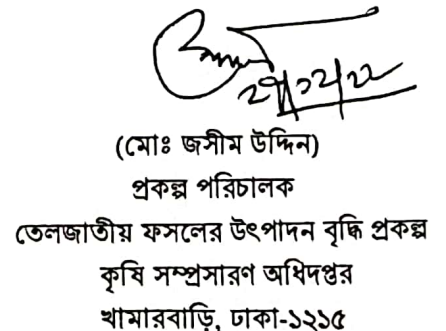 ২৭/১২/২২
(মোঃ জসীম উদ্দিন)
প্রকল্প পরিচালক
তেলজাতীয় ফসলের উৎপাদন বৃদ্ধি প্রকল্প
কৃষি সম্প্রসারণ অধিদপ্তর
খামারবাড়ি, ঢাকা-১২১৫